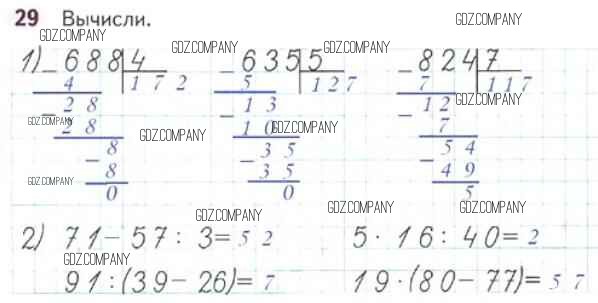 29 Вычисли.
GDZ.COMPANY GDZ.COMPANY GDZ.COMPANY GDZ.COMPANY
1) 688 4 635 5 824 7
- 4 172 - 5 127 - 7 117
28 13 12 GDZ.COMPANY
- 28 - 10 - 7
GDZ.COMPANY GDZ.COMPANY GDZ.COMPANY
8 35 54
- 8 - 35 - 49
0 0 5
GDZ.COMPANY GDZ.COMPANY GDZ.COMPANY GDZ.COMPANY
2) 71 - 57 : 3 = 52 5 · 16 : 40 = 2
GDZ.COMPANY
91 : (39 - 26) = 7 19 · (80 - 77) = 57